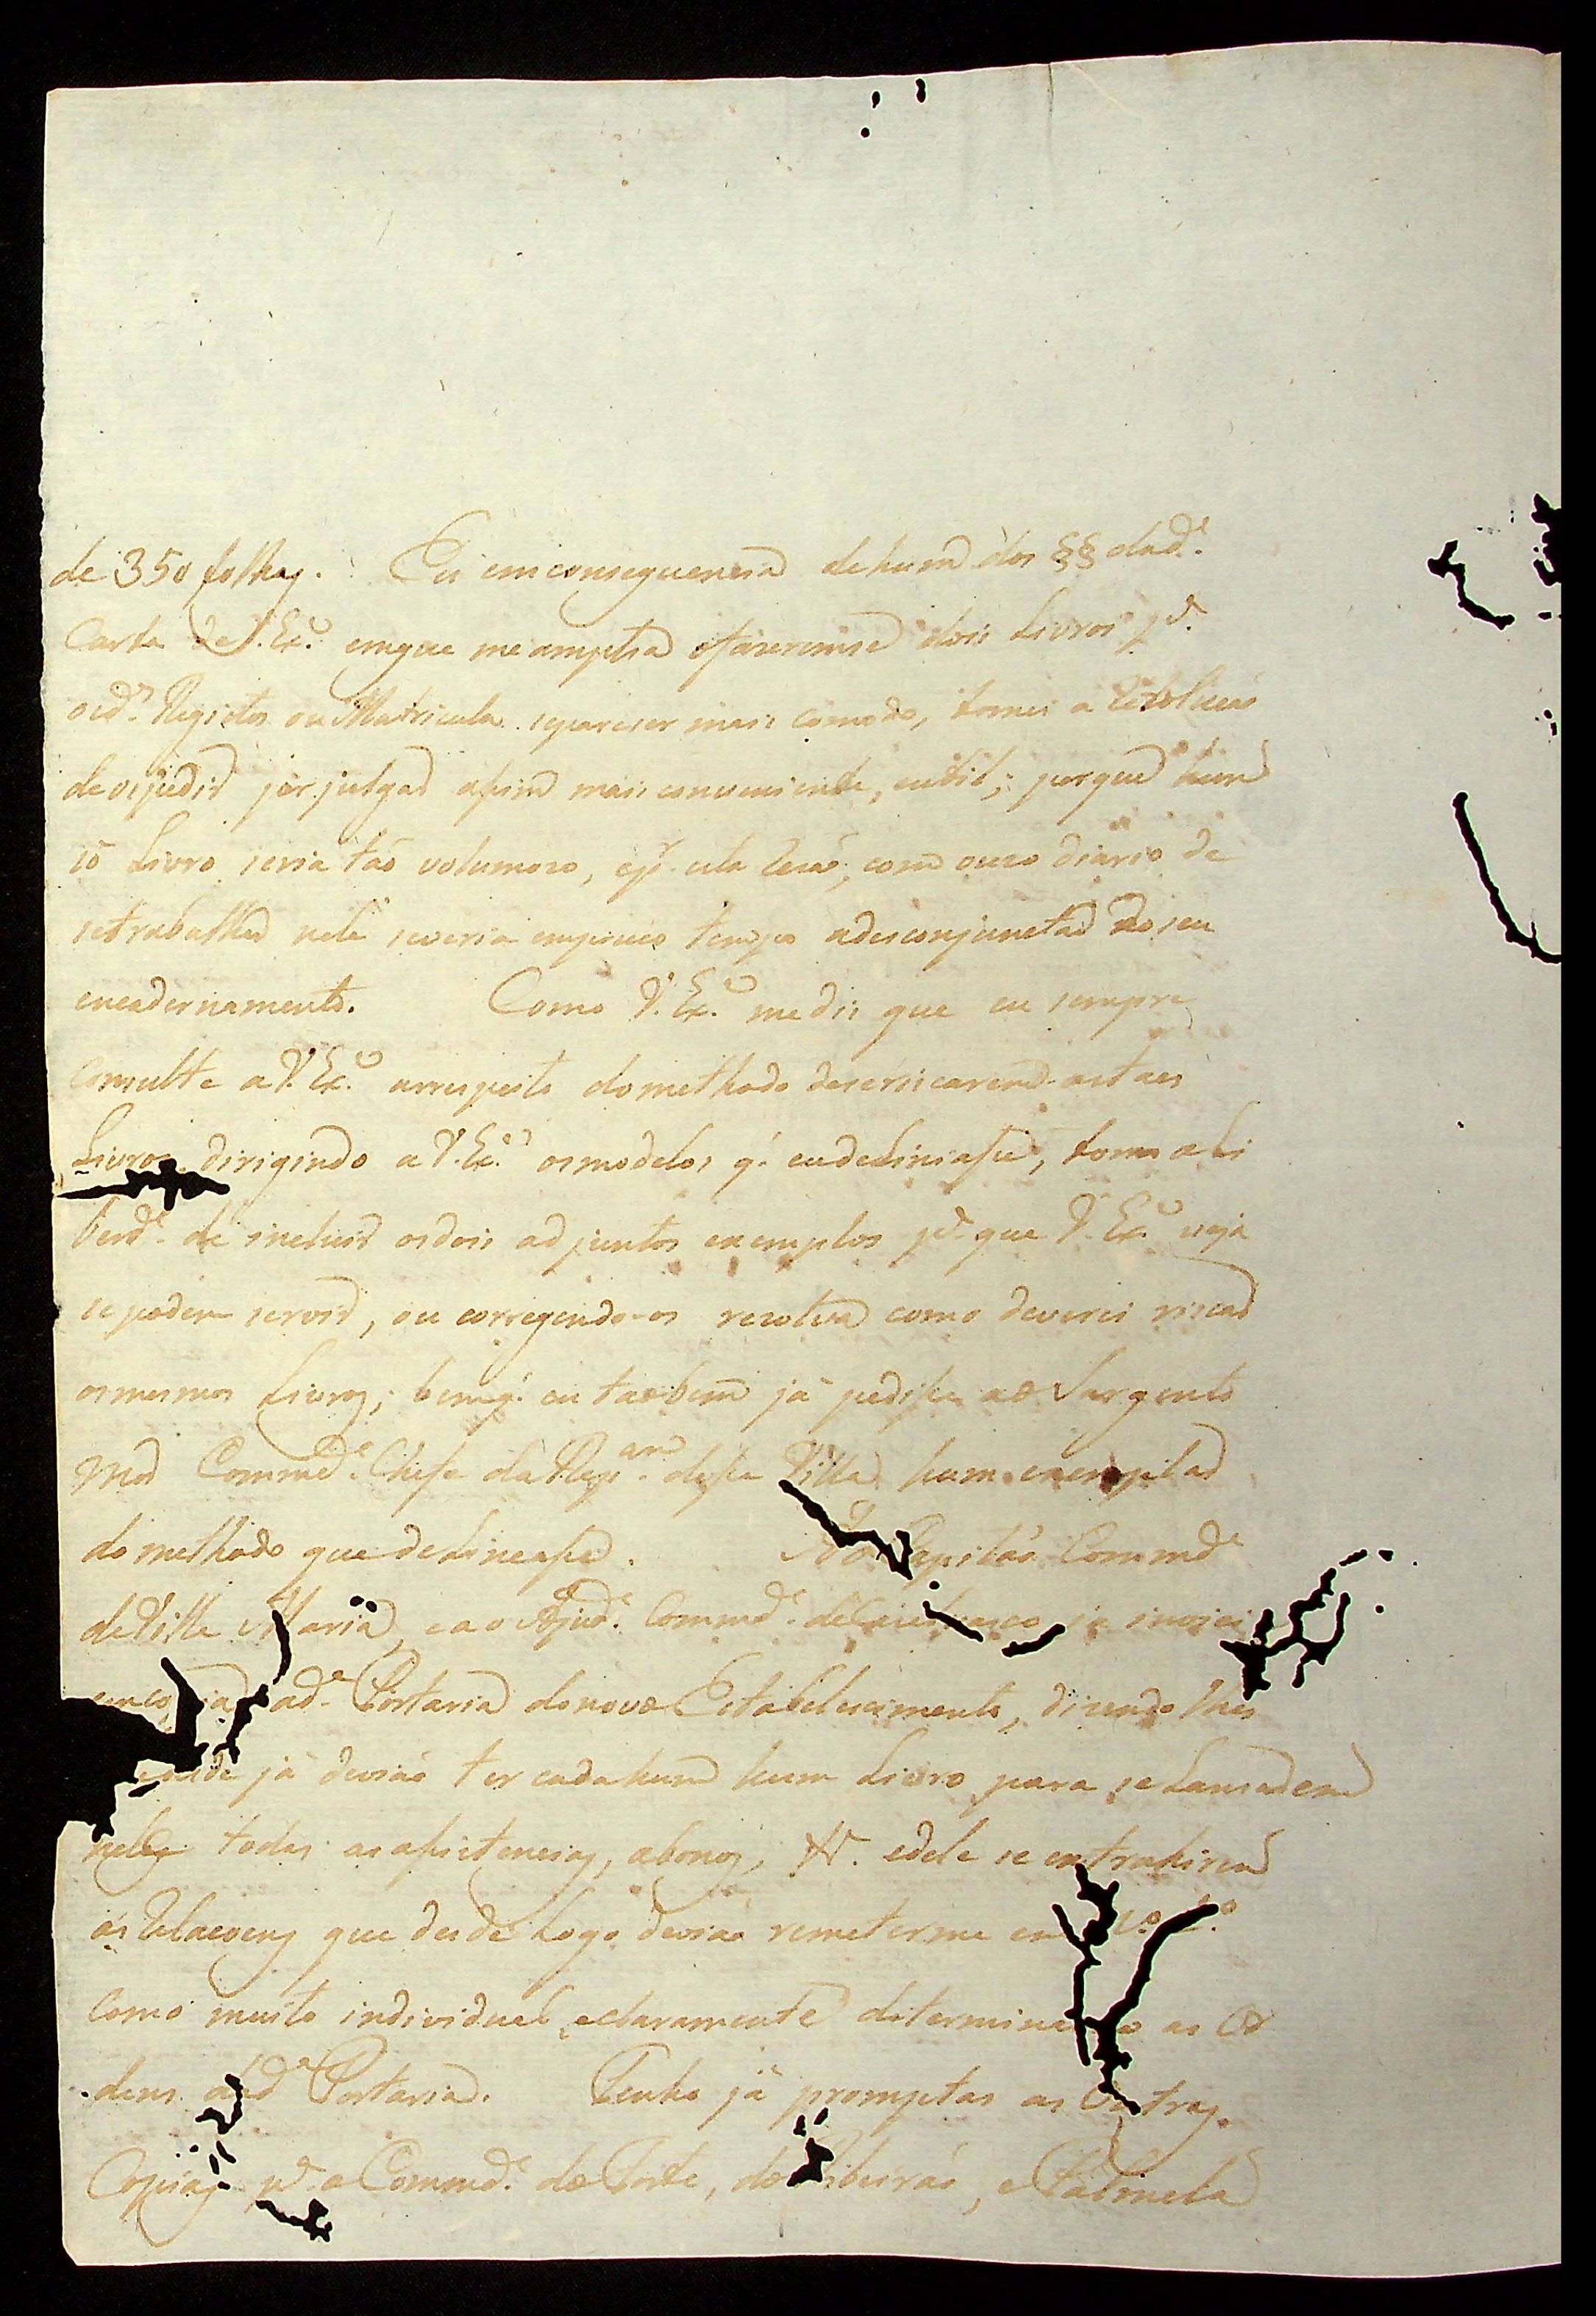 de 350 folhas. Eu em consequencia de hum dos §§ da d.e
Carta de V. Ex.a em que me amplia o fazeremse dois Livros p.a
o d.o Registos ou Matricula se parecer mais cómodo, tomei a rezolucaõ
de os pedir por julgar assim mais conveniente, e util; porque hum
só Livro seria taõ volumozo, q̃ p.r esta rezaõ, com o uzo diario de
se trabalhar nele se veria em pouco tempo a desconjunctar do seu
encadernamento. Como V. Ex.a me diz que eu sempre
consulte a V. Ex.a a respeito do methodo de se riscarem estes
Livros dirigindo a V. Ex.a os modelos q.̃ eu deliniasse, tomo a li
berd.e de incluir os dois adjuntos exemplos p.a que V. Ex.a veja
se podem servir, ou corregendo-os rezolva como deverei riscar
os mesmos Livros; bem q.̃ eu taõbem já pedisse ao Sargento
Mor Commd.e Chefe da Rep.am dessa Villa hum exemplar
do methodo que delineasse. Ao Capitaõ Commd.e
de Villa Maria, e ao Ajud.e Commd.e de já inviei
em copia a d.a Portaria do novo Estabelecimento, dizendo lhes
já deviaõ ter cada hum hum Livro para se Lansarem
neles todas as asistencias, abonos, &.a e dele se extrahirem
as Relacoens que desde logo deviaõ remeterme em
como muito individual, e claramente determinavaõ as Or
dens da d.a Portaria. Tenho já promptas as outras
Copias p.a o Commd.e do Forte, do Ribeiraõ, e Palmela